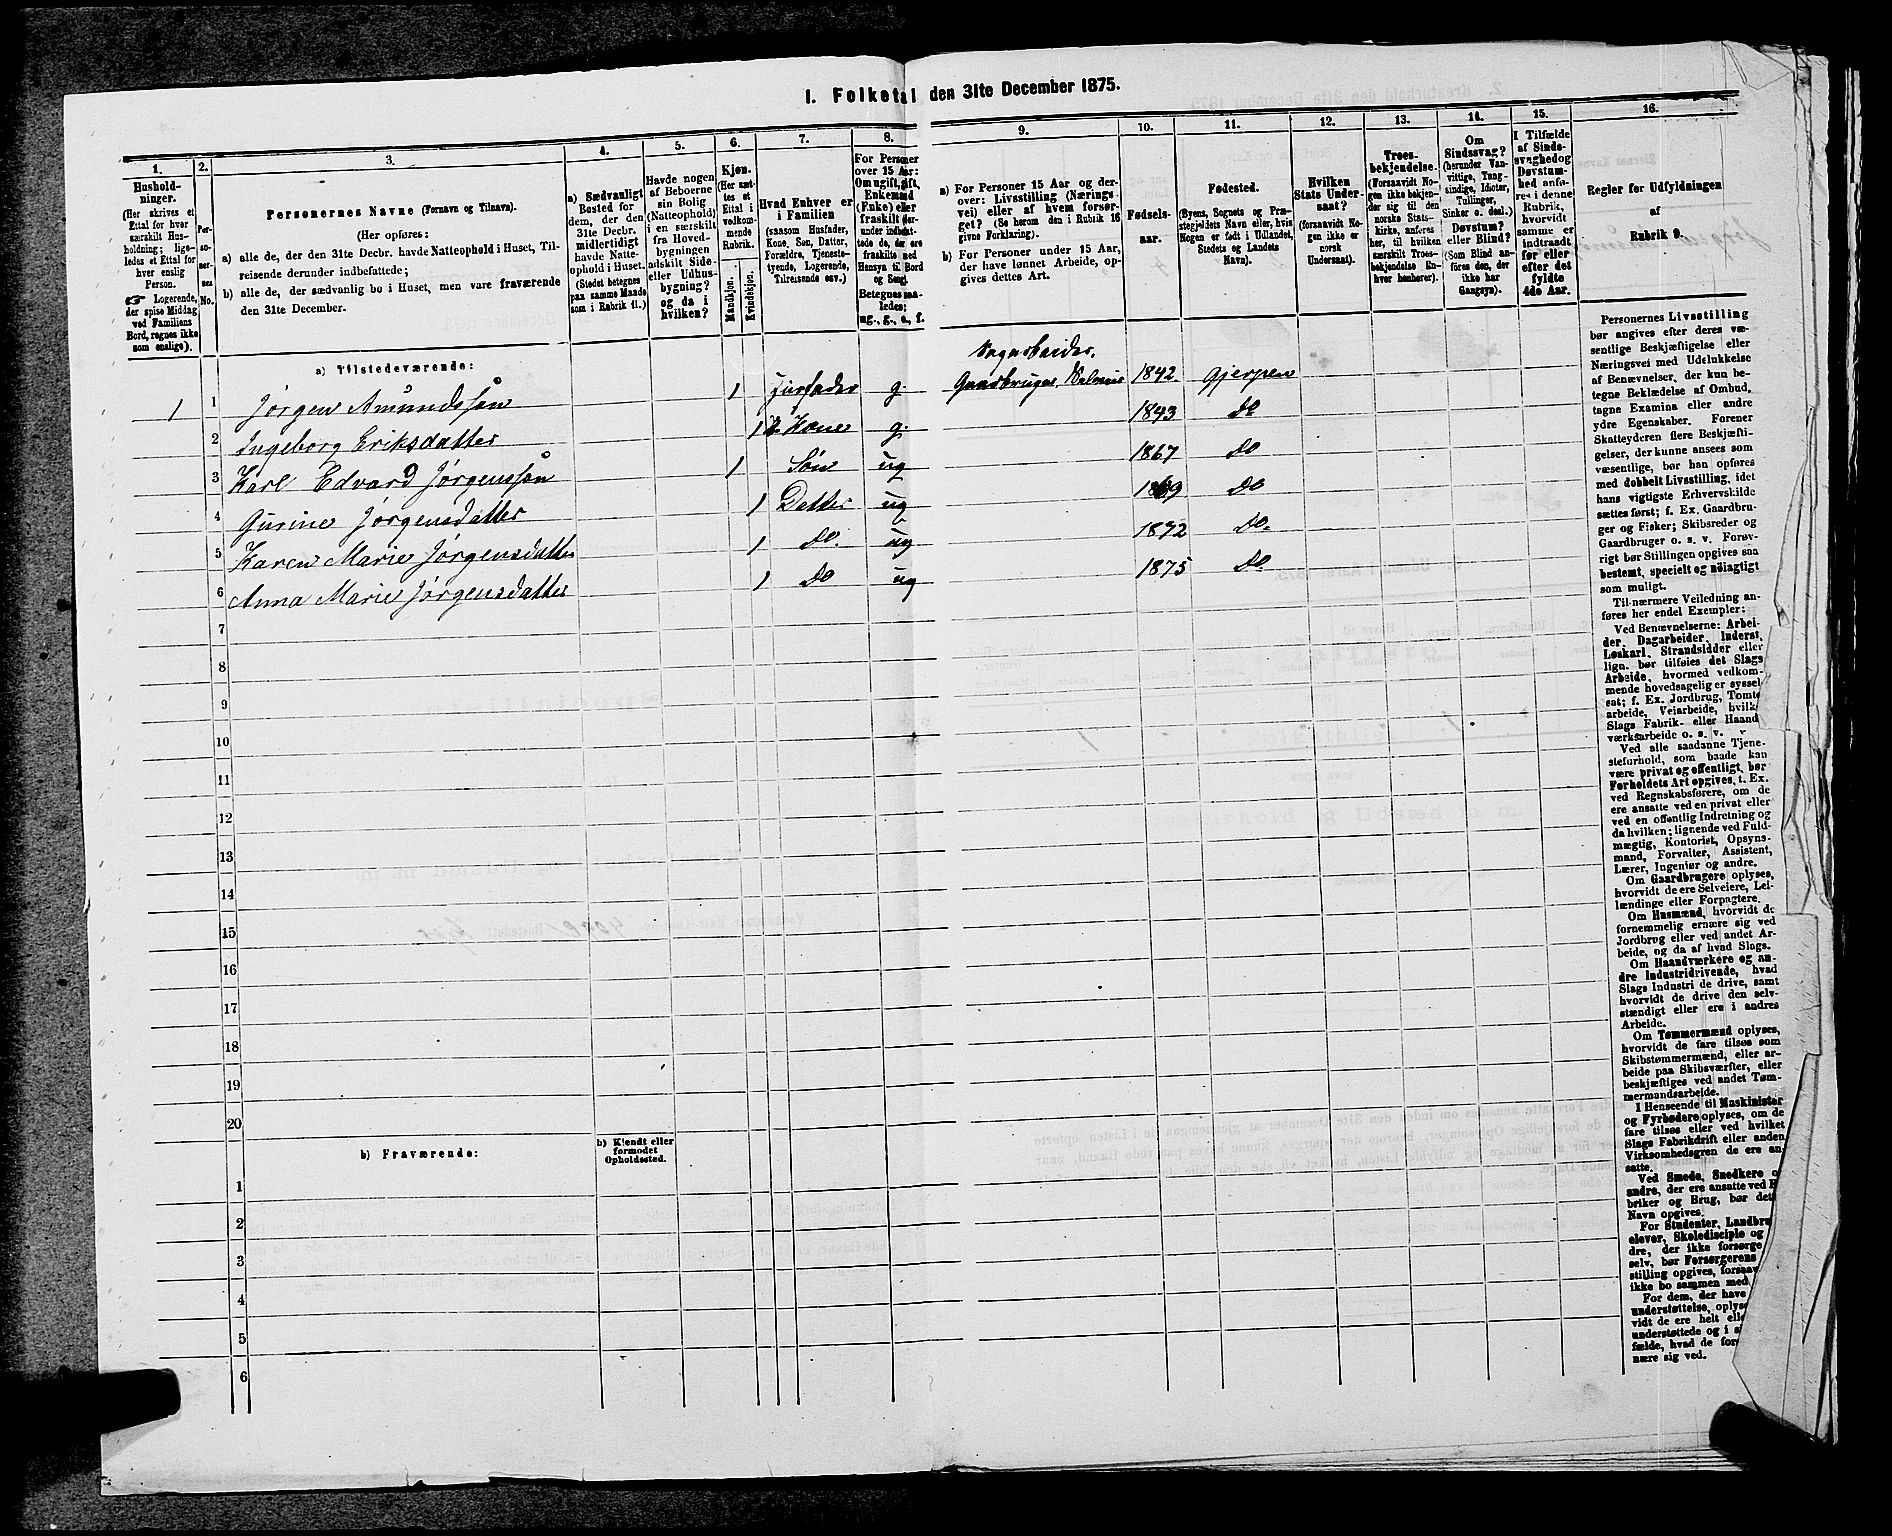 1. Folketal den 31te December 1875.
1. 2. 3. 4. 5. 6. 7. 8. 9. 10. 11. 12. 13. 14. 15. 16.
Hushold-
ninger.
(Her skrives et
Ettal for hver
særskilt Hus-
holdning; lige-
ledes et Ettal for
hver enslig
Person.
☞ Logerende,
der spise Middag
ved Familiens
Bord, regnes ikke
som enslige).
Per-
so-
ner-
nes
No.
Personernes Navne (Fornavn og Tilnavn).
(Her opføres:
a) alle de, der den 31te Decbr. havde Natteophold i Huset, Til-
reisende derunder indbefattede;
b) alle de, der sædvanlig bo i Huset, men vare fraværende
den 31te December.
a) Sædvanligt
Bosted for
dem, der den
31te Decbr.
midlertidigt
havde Natte-
ophold i Huset.
(Stedet betegnes
paa samme Maade
som i Rubrik 11.)
Havde nogen
af Beboerne
sin Bolig
(Natteophold)
i en særskilt
fra Hoved-
bygningen
adskilt Side-
eller Udhus-
bygning?
og da i
hvilken?
Kjøn.
(Her sæt-
tes et
Ettal i
vedkom-
mende
Rubrik.
Mandkjøn.
Kvindekjøn.
Hvad Enhver er
i Familien
(saasom Husfader,
Kone, Søn, Datter,
Forældre, Tjeneste-
tyende, Logerende,
Tilreisende osv.)
For Personer
over 15 Aar:
Om ugift, gift,
Enkemand
(Enke) eller
fraskilt der-
under indbefat-
tede de, der ere
fraskilte med
Hensyn til Bord
og Seng.
Betegnes saa-
ledes:
ug., g., e., f.
a) For Personer 15 Aar og der-
over: Livsstilling (Nærings-
vei) eller af hvem forsør-
get? (Se herom den i Rubrik 16
givne Forklaring).
b) For Personer under 15 Aar,
der have lønnet Arbeide, op-
gives dettes Art.
Fødsels-
aar.
Fødested.
(Byens, Sognets og Præ-
stegjeldets Navn eller, hvis
Nogen er født i Udlandet,
Stedets og Landets
Navn).
Hvilken
Stats Under-
saat?
(foraavidt No-
gen ikke er
norsk
Undersaat).
Troes-
bekjendelse.
(Forsaavidt No-
gen ikke bekjen-
der sig til den
norske Stats-
kirke, anføres
her, til hvilken
særskilt Troes-
bekjendelse En-
hver henhører).
Om
Sindssvag?
(herunder Van-
vittige, Tung-
sindige, Idioter,
Tullinger,
Sinker o. desl.)
Døvstum?
eller Blind?
(Som Blind an-
føres den, der
ikke har
Gangsyn).
I Tilfælde
af Sinds-
svaghed og
Døvstum-
hed anfø-
res i denne
Rubrik,
hvorvidt
samme er
indtraadt
før eller
efter det
fyldte
4de Aar.
Regler for Udfyldningen
af
Rubrik 9.
a) Tilstedeværende:
1 1 Jørgen Amundssøn 1 Husfader g. Gaardbruger, Selveier 1842 Gjerpen
2 Ingeborg Eriksdatter 1 Kone g. 1843 Do
3 Karl Edvard Jørgenssøn 1 Søn ug 1867 Do
4 Gurine Jørgensdatter 1 Datter ug 1869 Do
5 Karen Marie Jørgensdatter 1 Do. ug 1872 Do.
6 Anna Marie Jørgensdatter 1 Do ug 1875 Do.
7
8
9
10
11
12
13
14
15
16
17
18
19
20
b) Fraværende:
b) Kjendt eller
formodet
Opholdssted.
1
2
3
4
5
6
Personernes Livsstilling
bør angives efter deres væ-
sentlige Beskjæftigelse eller
Næringsvei med Udelukkelse
af Benævnelser, der kun be-
tegne Beklædelse af Ombud,
tagne Examina eller andre
ydre Egenskaber. Forener
Skatteyderen flere Beskjæfti-
gelser, der kunne ansees som
væsentlige, bør han opføres
med dobbelt Livsstilling, idet
hans vigtigste Erhvervskilde
sættes først; f. Ex. Gaardbru-
ger og Fisker; Skibsreder og
Gaardbruger o. s. v. Forøv-
rigt bør Stillingen opgives saa
bestemt, specielt og nøiagtigt
som muligt.
Til nærmere Veiledning an-
føres her endel Exempler:
Ved Benævnelserne: Arbei-
der, Dagarbeider, Inderst,
Løskarl, Strandsidder eller
lign. bør tilføies det Slags
Arbeide, hvormed vedkom-
mende hovedsagelig er syssel-
sat; f. Ex. Jordbrug, Tomte-
arbeide, Veiarbeide, hvilke
Slags Fabrik- eller Haand
værksarbeide o. s. v.
Ved alle saadanne Tjene-
steforhold, som baade kan
være privat og offentligt, bør
Forholdets Art opgives, t. Ex.
ved Regnskabsførere, om de
ere ansatte ved en privat eller
ved en offentlig Indretning og
da hvilken; lignende ved Fuld-
mægtig, Kontorist, Opsyns-
mand, Forvalter, Assistent,
Lærer, Ingeniør og andre.
Om Gaardbrugere oplyses,
hvorvidt de ere Selveiere, Lei-
lændinge eller Forpagtere.
Om Husmænd, hvorvidt de
fornemmelig ernære sig ved
Jordbrug eller ved andet Ar-
beide, og da af hvad Slags.
Om Haandværkere og an-
dre Industridrivende, hvad
Slags Industri de drive, samt
hvorvidt de drive den selv-
stændigt eller ere i andres
Arbeide.
Om Tømmermænd oplyses,
hvorvidt de fare tilsøs som
Skibstømmermænd, eller ar-
beide paa Skibsværfter, eller
beskjæftiges ved andet Tøm-
mermandsarbeide.
I Henseende til Maskinister
og Fyrbødere oplyses, om de
fare tilsøs eller ved hvilket
Slags Fabrikdrift eller anden
Virksomhedsgren de ere an-
satte.
Ved Smede, Snedkere o
andre, der ere ansatte ved
briker og Brug, bør det
Navn opgives.
For Studenter, Landbru
elever, Skoledisciple og
dre, der ikke forsørge
selv, bør Forsørgerens
stilling opgives, forsaav
ikke bo sammen med
For dem, der have
understøttelse, oplys
vidt de ere helt ell
understøttede og i
fælde, hvad de for
nære sig ved.